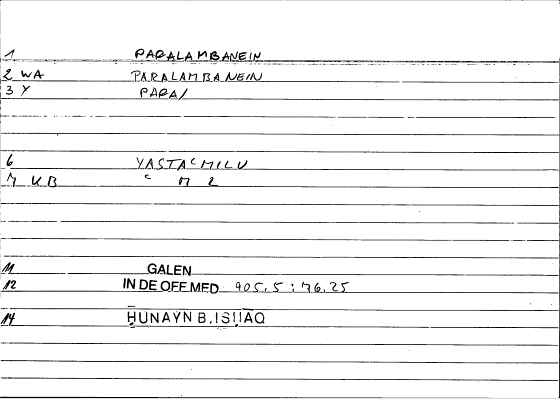 1 PARALAMBANEIN
2 WA PARALAMBANEIN
3 Y PARA/
6 YASTAᶜMILU
7 KB ᶜ M L
11 GALEN
12 IN DE OFF.MED 905.5 : 76.25
14 ḤUNAYN B. ISḤAQ